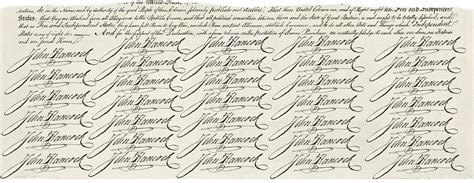 in the Name, and by Authority of the good People of these Colonies, solemnly publish and declare, That these United Colonies are, and of Right ought to be Free and Independent
States; that they are Absolved from all Allegiance to the British Crown, and that all political connection between them and the State of Great Britain, is and ought to be totally dissolved; and
that as Free and Independent States, they have full Power to levy War, conclude Peace, contract Alliances, establish Commerce, and to do all other Acts and Things which Independent
States may of right do. And for the support of this Declaration, with a firm reliance on the protection of divine Providence, we mutually pledge to each other our Lives, our Fortunes
and our sacred Honor.
John Hancock John Hancock John Hancock John Hancock John Hancock
John Hancock John Hancock John Hancock John Hancock John Hancock
John Hancock John Hancock John Hancock John Hancock John Hancock
John Hancock John Hancock John Hancock John Hancock John Hancock
John Hancock John Hancock John Hancock John Hancock John Hancock
John Hancock John Hancock John Hancock John Hancock John Hancock
John Hancock John Hancock John Hancock John Hancock John Hancock